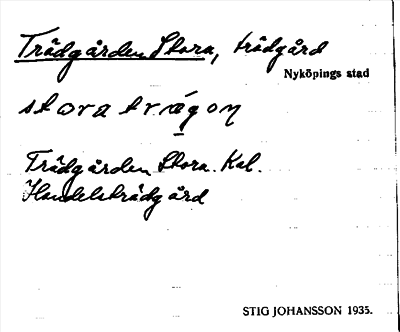 Trädgården Stora, trädgård
Nyköpings stad
stora trægon
Trädgården Stora. Kal.
Handelsträdgård
STIG JOHANSSON 1935.